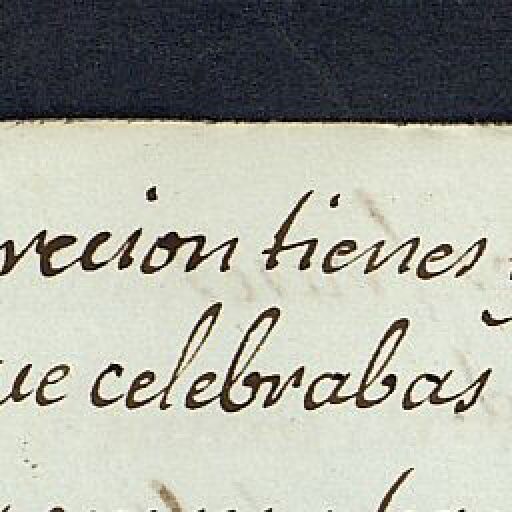 reccion tienes
ue celebrabas